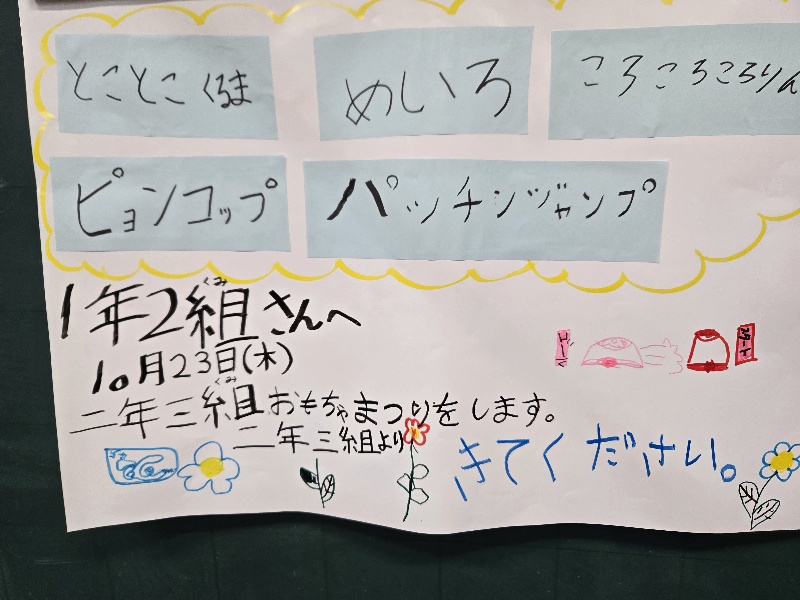 とことこくるま
めいろ
ころころころりん
ピョンコップ
パッチンジャンプ
くみ
1年2組さんへ
10月23日(木)
くみ
二年三組おもちゃまつりをします。
二年三組より
きてください。
ゴール
スタート